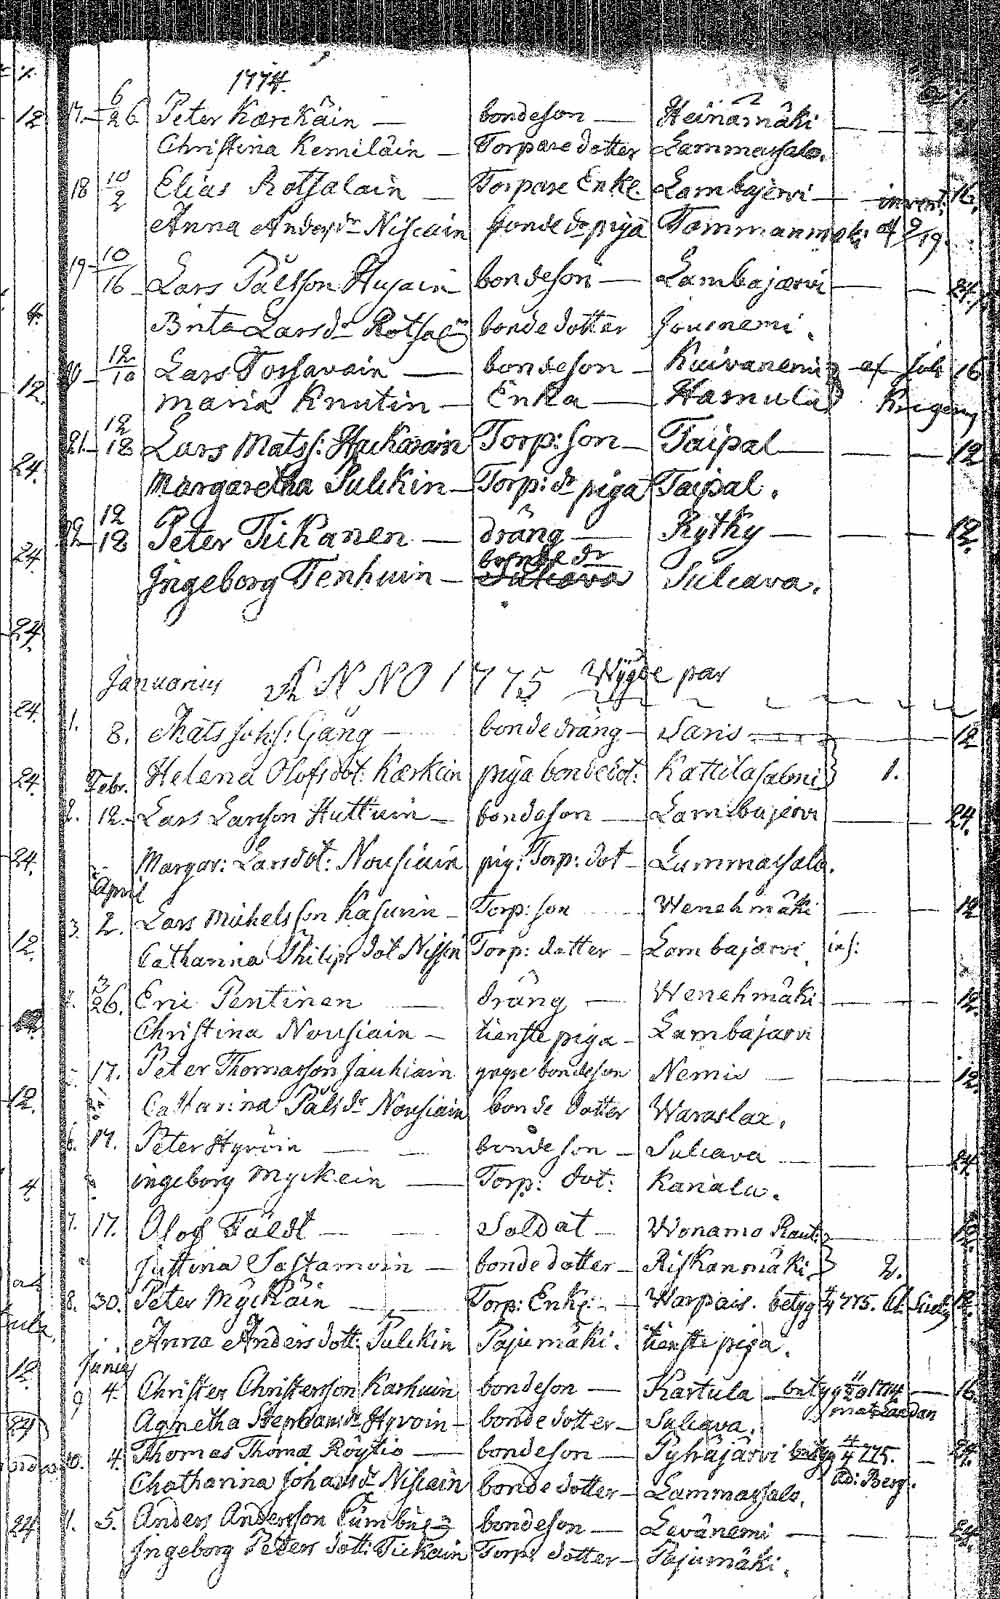 1774.
17. 6/26 Peter Kærckäin — bondeson — Heinämäki
Christina Kemiläin — Torpare dotter Lammassalo.
18 10/2 Elias Rotsalain — Torpare Enkl. Lambajervi — 16.
Anna Andersdr Niscain bonde dr piga Tammanmäki
19 10/16 Lars Pålsson Husain bondeson — Lambajærvi — 24.
Brita Larsdr bonde dotter Jouenemi.
20 12/10 Lars Tossavain — bondeson — Kuivanemi 16
Maria Knutin — Enka — Hamula
21. 12/18 Lars Matss: Torp: son — Taipal — 12
Margaretha Pulckin — Torp: dr piga Taipal.
22 12/18 Peter Tickanen — dräng — Rytky — 12.
bonde dr
Ingeborg Tenhuin — Sulcava.
Januarius ANNO 1775 Wigde par
1. 8. Mats Johs: Gång — bonde dräng — Saris — 12
Febr. Helena Olofsdot: Kærkäin piga bondedot: Kattilasalmi 1.
2. 12. Lars Larsson Huttuin — bondeson — Lambajervi — 24.
Margar: Larsdot: Nousiain pig: Torp: dot — Lammassalo.
April
3. 2. Lars Michelsson Kasurin — Torp: son Wenehmäki — 12
Catharina Philips dot Nissin Torp: dotter — Lambajærvi.
26. Eric Pentinen — dräng — Wenehmäki — 12.
Christina Nousiain — tienste piga — Lambajarvi
17. Peter Thomasson Jauhiain bondeson Nemis — 12
Catharina Påls dr Nousiain bonde dotter Waraslax.
6. 17. Peter Hyvöin — bondeson — Sulcava — 24.
ingeborg Myckein — Torp: dot: Kanala.
7. 17. Olof Täldt — Soldat — Wonamo Raut: — 12.
Justina Sastamoin — bonde dotter — Riskanmäki 2.
8. 30. Peter Myckäin — Torp: Enkl: — Warpais. betyg 775. 12.
Anna Anders dott: Pulckin Pajumäki. tienste piga.
Junius
9 4. Christer Christersson Karhuin bondeson — Kartula — 16.
Agnetha Stephansdr Hyvoin — bonde dotter — Sulcava.
10. 4. Thomas Thoma Röytio — bondeson — Pyhäjärvi 4/4 775. — 24.
Chatharina Johansdr Niscain bonde dotter — Lammassalo. Ad: Berg.
11. 5. Anders Andersson bondeson — Levänemi — 24.
Ingeborg Peters dott: Tickain Torp: dotter — Pajumäki.